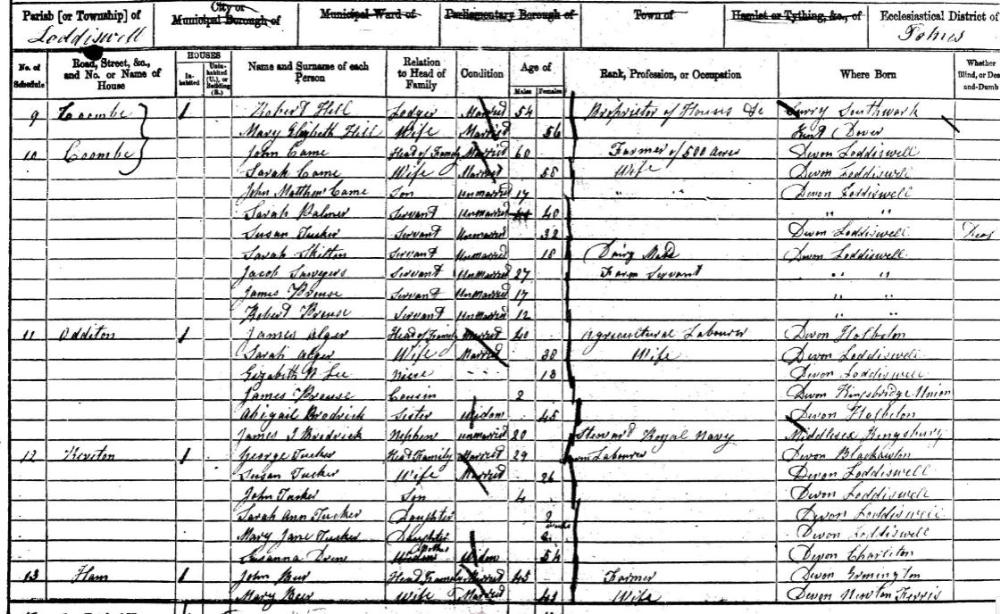 Parish [or Township] of City or Municipal Borough of Municipal Ward of Parliamentary Borough of Town of Hamlet or Tything, &c., of Ecclesiastical District of
Loddiswell
No. of Schedule Road, Street, &c., and No. or Name of House HOUSES In-habited Unin-habited (U.), or Building (B.) Name and Surname of each Person Relation to Head of Family Condition Age of Males Females Rank, Profession, or Occupation Where Born Whether Blind, or Deaf-and-Dumb
9 Coombe 1 Robert Hill Lodger Married 54 Proprietor of Houses &c Surry Southwark
Mary Elizabeth Hill Wife Married 56 Kent Dover
10 Coombe John Came Head of Family Married 60 Farmer of 500 Acres Devon Loddiswell
Sarah Came Wife Married 58 Wife Devon Loddiswell
John Matthew Came Son Unmarried 17 " " Devon Loddiswell
Sarah Palmer Servant Unmarried 40 " "
Susan Tucker Servant Unmarried 32 Devon Loddiswell Deaf
Sarah Servant Unmarried 18 Dairy Maid Devon Loddiswell
Jacob Sawyers Servant Unmarried 27 Farm Servant " "
James Preuse Servant Unmarried 17 " "
Robert Preuse Servant Unmarried 12 " "
11 1 James Alger Head of Family Married 40 Agricultural Labourer Devon Holbeton
Sarah Alger Wife Married 38 Wife Devon Loddiswell
Elizabeth Lee Niece 13 Devon Loddiswell
James Preuse Cousin 2 Devon Kingsbridge Union
Abigail Brodrick Sister Widow 45 Devon Holbeton
James Brodrick Nephew unmarried 20 Steward Royal Navy Middlesex Kingsbury
12 1 George Tucker Head Family Married 29 Labourer Devon Blackawton
Susan Tucker Wife Married 26 Devon Loddiswell
John Tucker Son 4 Devon Loddiswell
Sarah Ann Tucker Daughter 2 Devon Loddiswell
Mary Jane Tucker Daughter weeks Devon Loddiswell
Susanna Widow 54 Devon Charleton
13 Ham 1 John Beer Head Family Married 45 Farmer Devon Ermington
Mary Beer Wife Married 41 Wife Devon Newton Ferris